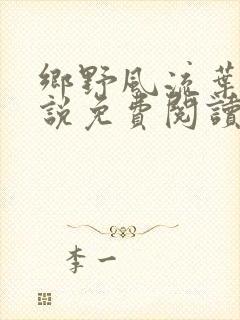 鄉野風流葉
說免費閱讀
李一